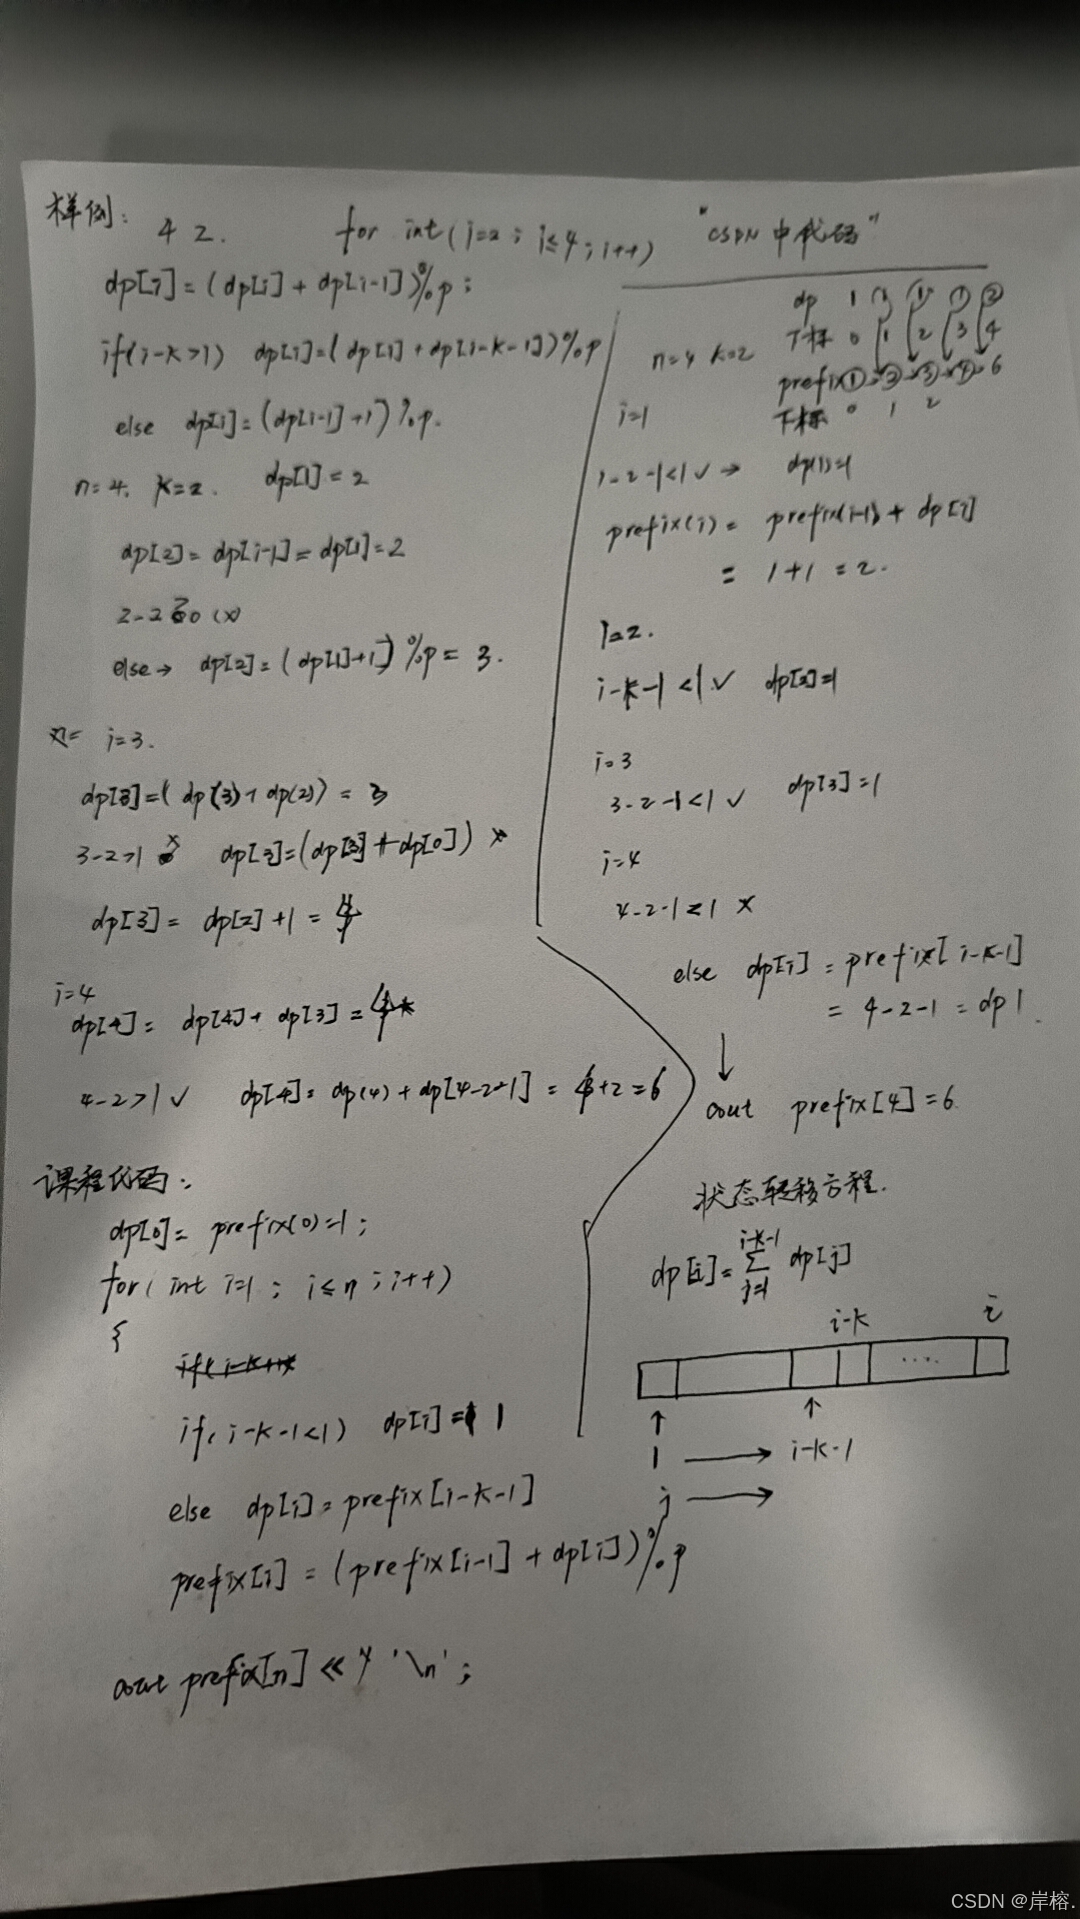 样例: 4 2. for int(i=2; i≤4; i++) "CSDN中代码"
dp[i]=(dp[i]+dp[i-1])%p;
if(i-k>1) dp[i]=(dp[i]+dp[i-k-1])%p
else dp[i]=(dp[i-1]+1)%p.
n=4, k=2. dp[1]=2
dp[2]=dp[i-1]=dp[1]=2
else→ dp[2]=(dp[1]+1)%p=3.
i=3.
dp[3]=(dp(3)+dp(2))=3
3-2>1 x dp[3]=(dp[3]+dp[0]) x
dp[3]=dp[2]+1=4
i=4
dp[4]=dp[4]+dp[3]=4
4-2>1 ✓ dp[4]=dp(4)+dp[4-2-1]=4+2=6
课程代码:
dp[0]=prefix(0)=1;
for(int i=1; i≤n; i++)
{
if(i-k-1<1) dp[i]=1
else dp[i]=prefix[i-k-1]
prefix[i]=(prefix[i-1]+dp[i])%p
cout prefix[n]<< '\n';
dp 1 1 1 1 2
下标 0 1 2 3 4
n=4 k=2
prefix 1 2 3 4 6
下标 0 1 2
i=1
1-2-1<1 ✓ → dp(1)=1
prefix(i)=prefix(i-1)+dp[i]
=1+1=2.
i=2.
i-k-1<1 ✓ dp[2]=1
i=3
3-2-1<1 ✓ dp[3]=1
i=4
4-2-1<1 x
else dp[i]=prefix[i-k-1]
=4-2-1=dp1.
↓
cout prefix[4]=6.
状态转移方程.
i-k-1
dp[i]=∑dp[j]
j=1
i-k i
....
↑ ↑
1 → i-k-1
j →
CSDN @岸榕.